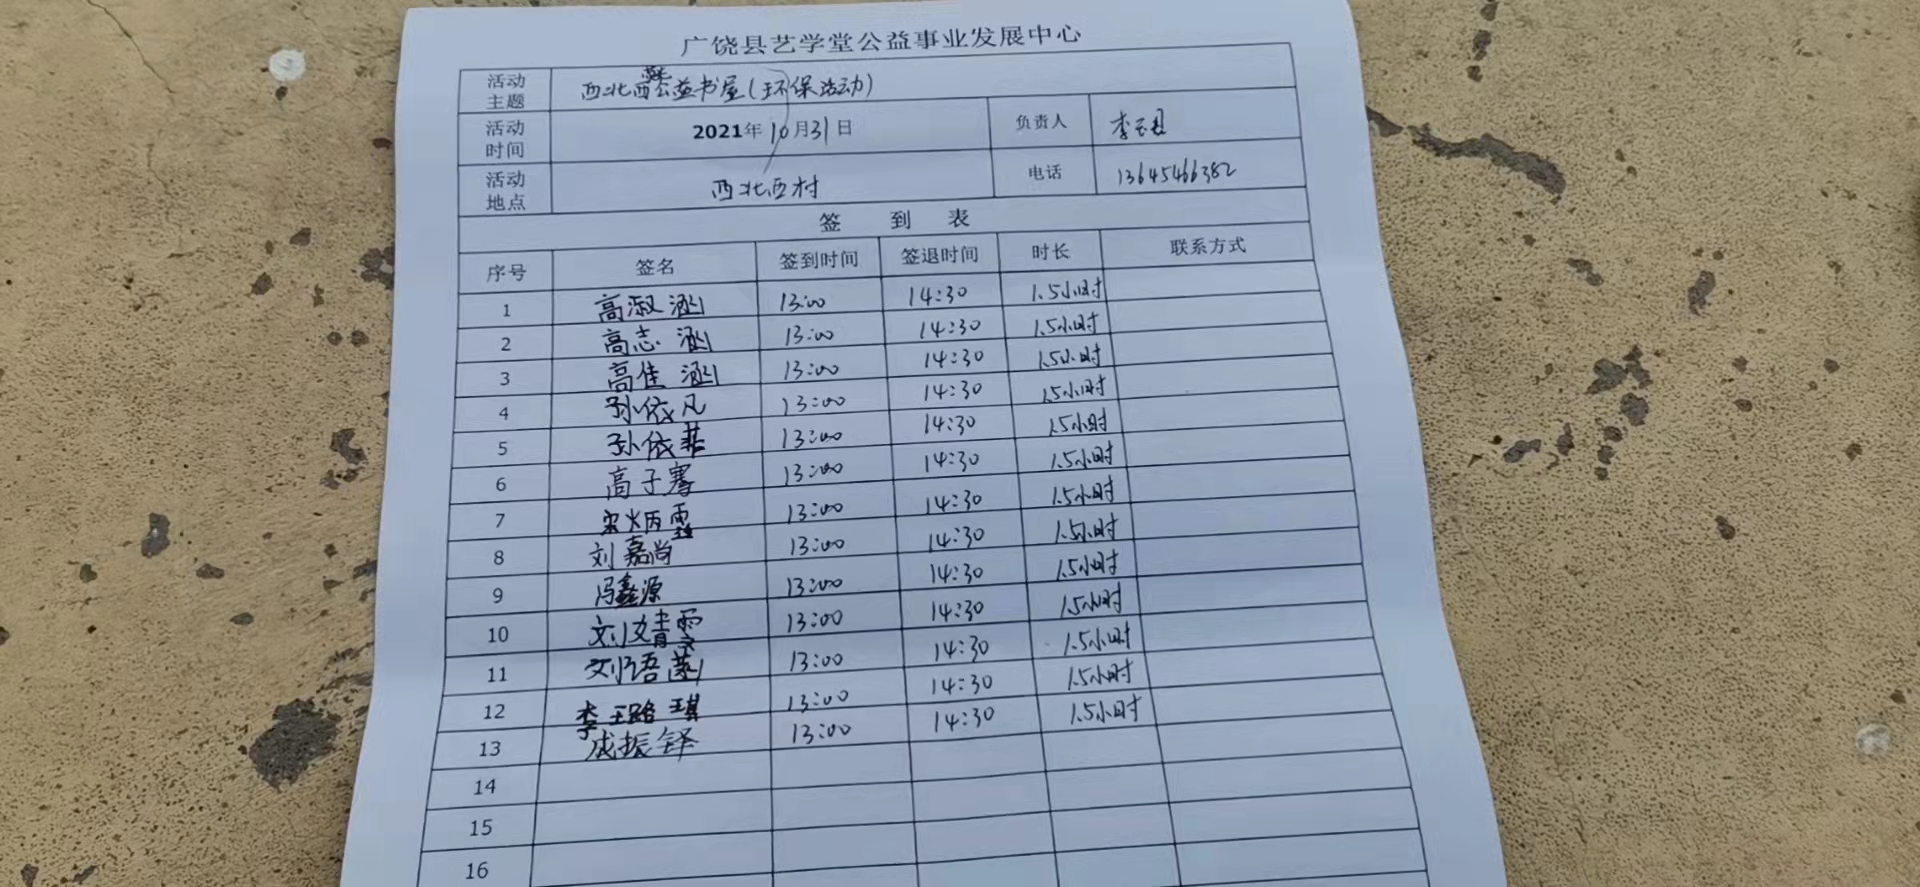 广饶县艺学堂公益事业发展中心
活动主题 西北西公益书屋(环保活动)
活动时间 2021年10月31日 负责人 李玉
活动地点 西北西村 电话 13645466382
签 到 表
序号 签名 签到时间 签退时间 时长 联系方式
1 高淑涵 13:00 14:30 1.5小时
2 高志涵 13:00 14:30 1.5小时
3 高佳涵 13:00 14:30 1.5小时
4 孙依凡 13:00 14:30 1.5小时
5 孙依菲 13:00 14:30 1.5小时
6 高子骞 13:00 14:30 1.5小时
7 宋炳霖 13:00 14:30 1.5小时
8 刘嘉尚 13:00 14:30 1.5小时
9 冯鑫源 13:00 14:30 1.5小时
10 刘婧雯 13:00 14:30 1.5小时
11 刘语菡 13:00 14:30 1.5小时
12 李王路琪 13:00 14:30 1.5小时
13 成振铎 13:00 14:30 1.5小时
14
15
16